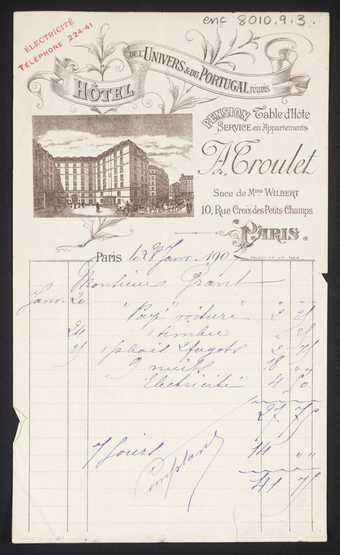 enc 8010.9.3.
ÉLECTRICITÉ
TÉLÉPHONE 224-41
HÔTEL DE L'UNIVERS & DU PORTUGAL réunis
PENSION Table d'Hôte
SERVICE en Appartements
A. Troulet
Succ de Mme WILBERT
10, Rue Croix des Petits-Champs
PARIS.
Paris le 27 Janv. 190
Monsieur Grant
Janv. 20
"Payé" voiture 2 25
24 timbre " 25
2 75
9 nuits 18 "
Electricité 4 50
27 75
7 Jours 14 "
41 75
Comptant